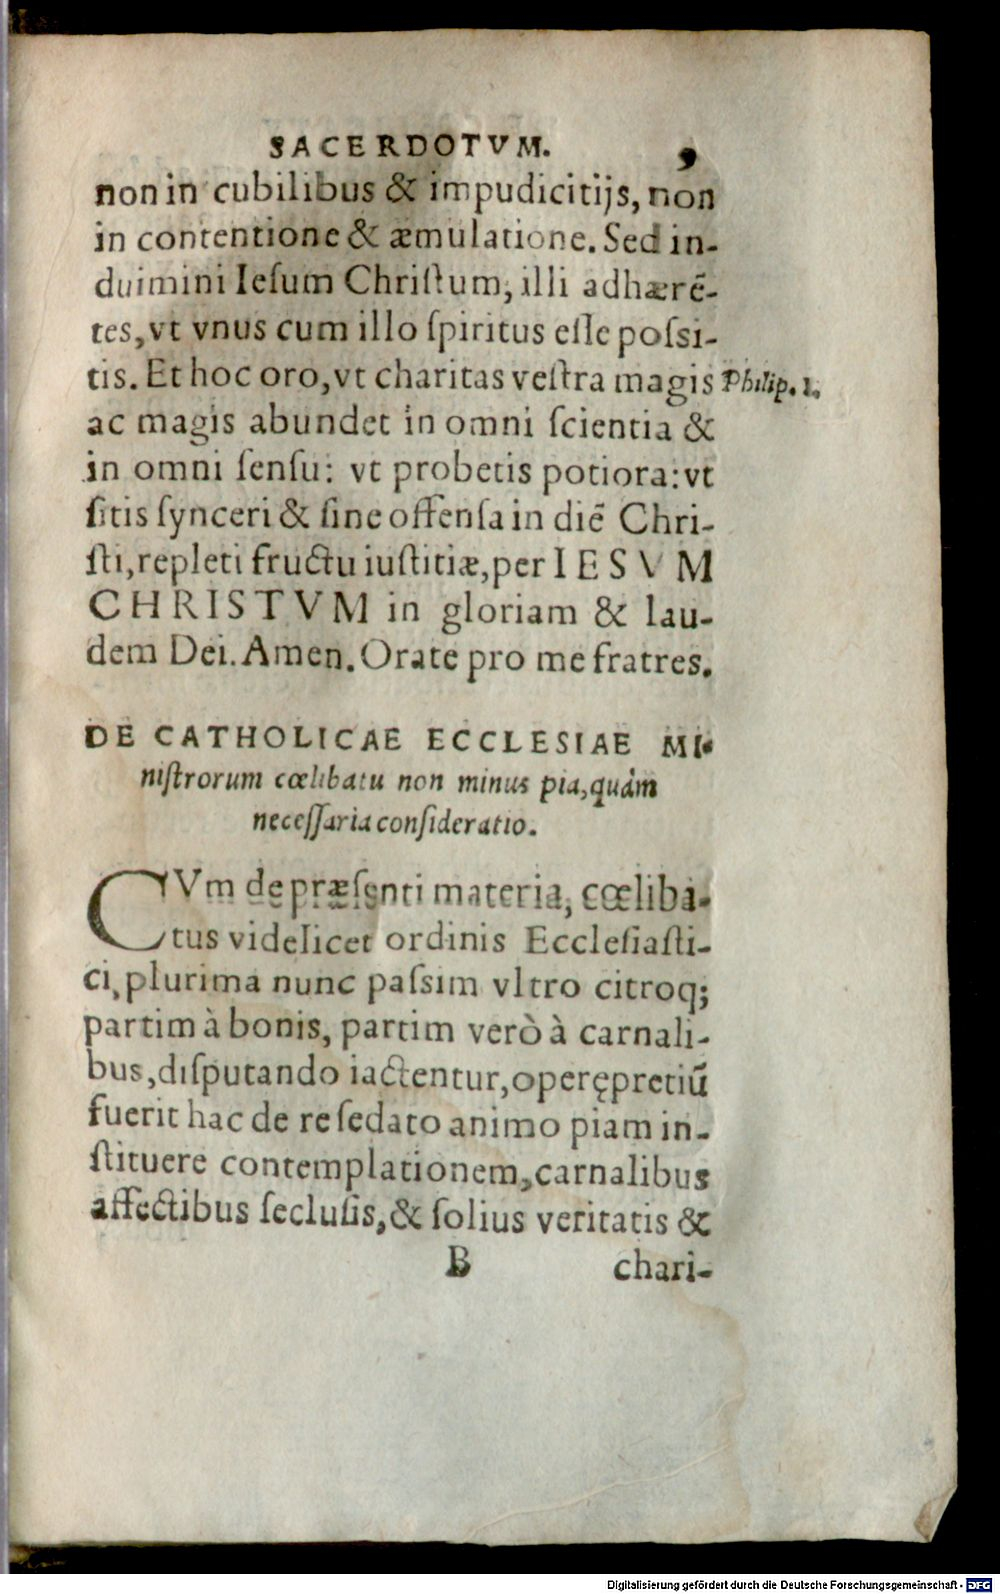 SACERDOTVM. 9
non in cubilibus & impudicitijs, non
in contentione & æmulatione. Sed in-
duimini Iesum Christum, illi adhærẽ-
tes, vt vnus cum illo spiritus esse possi-
tis. Et hoc oro, vt charitas vestra magis Philip. 1.
ac magis abundet in omni scientia &
in omni sensu: vt probetis potiora: vt
sitis synceri & sine offensa in diẽ Chri-
sti, repleti fructu iustitiæ, per IESVM
CHRISTVM in gloriam & lau-
dem Dei. Amen. Orate pro me fratres.
DE CATHOLICAE ECCLESIAE MI-
nistrorum cœlibatu non minus pia, quàm
necessaria consideratio.
CVm de præsenti materia, cœliba-
tus videlicet ordinis Ecclesiasti-
ci, plurima nunc passim vltro citroq;
partim à bonis, partim verò à carnali-
bus, disputando iactentur, operępretiũ
fuerit hac de re sedato animo piam in-
stituere contemplationem, carnalibus
affectibus seclusis, & solius veritatis &
B chari-
Digitalisierung gefördert durch die Deutsche Forschungsgemeinschaft - DFG